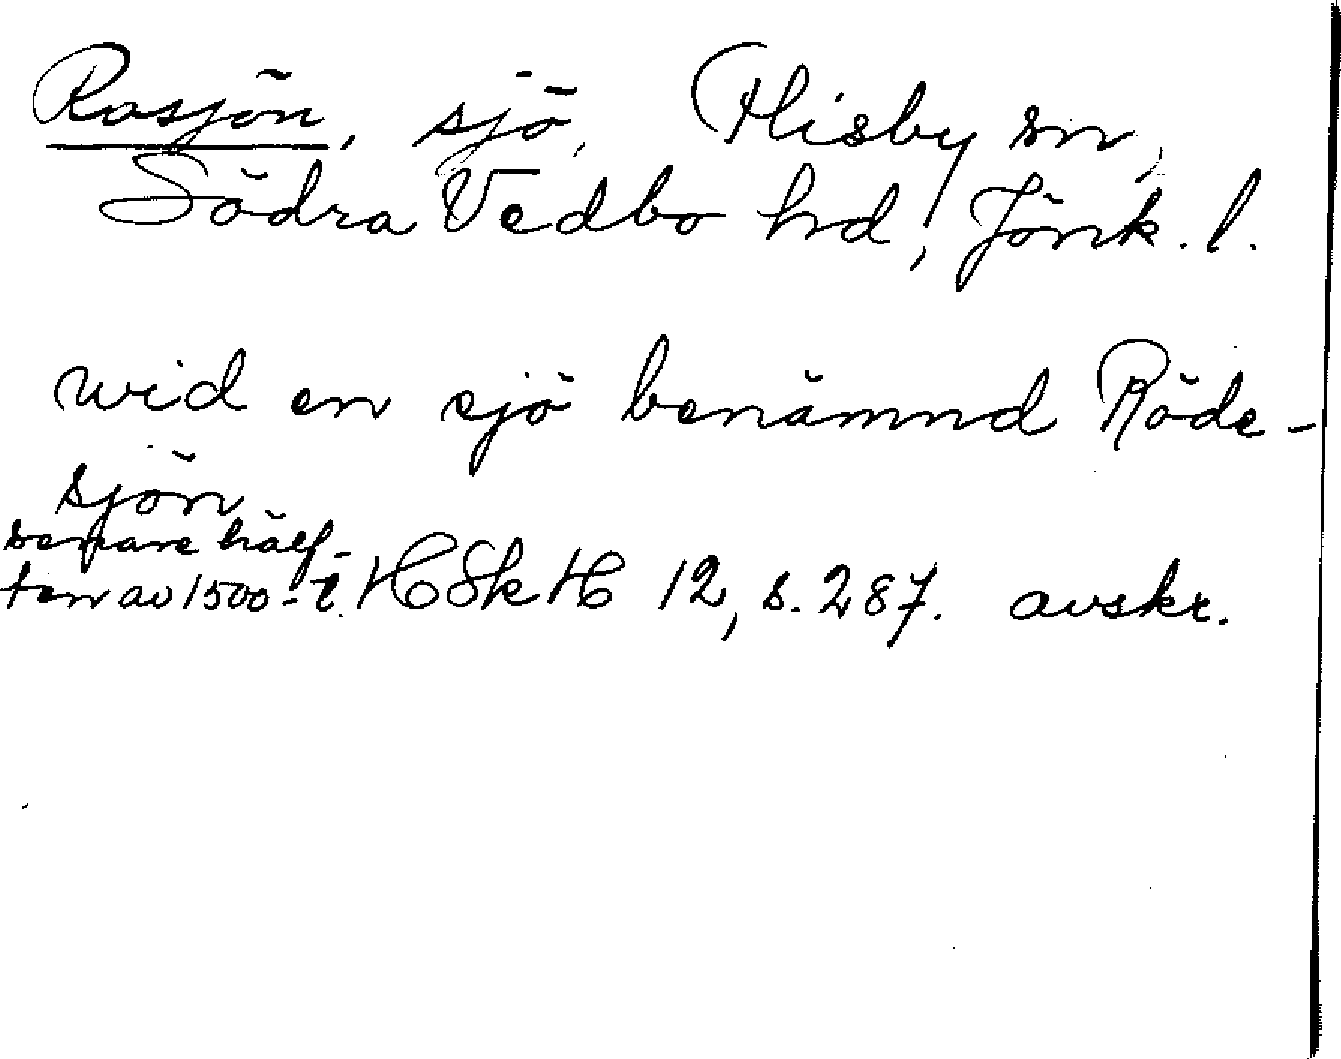 Rosjön, sjö, Flisby sn,
Södra Vedbo hd, Jönk. l.
wid en sjö benämnd Röde-
sjön
senare hälf-
ten av 1500-t. HSkH 12, s. 287. avskr.